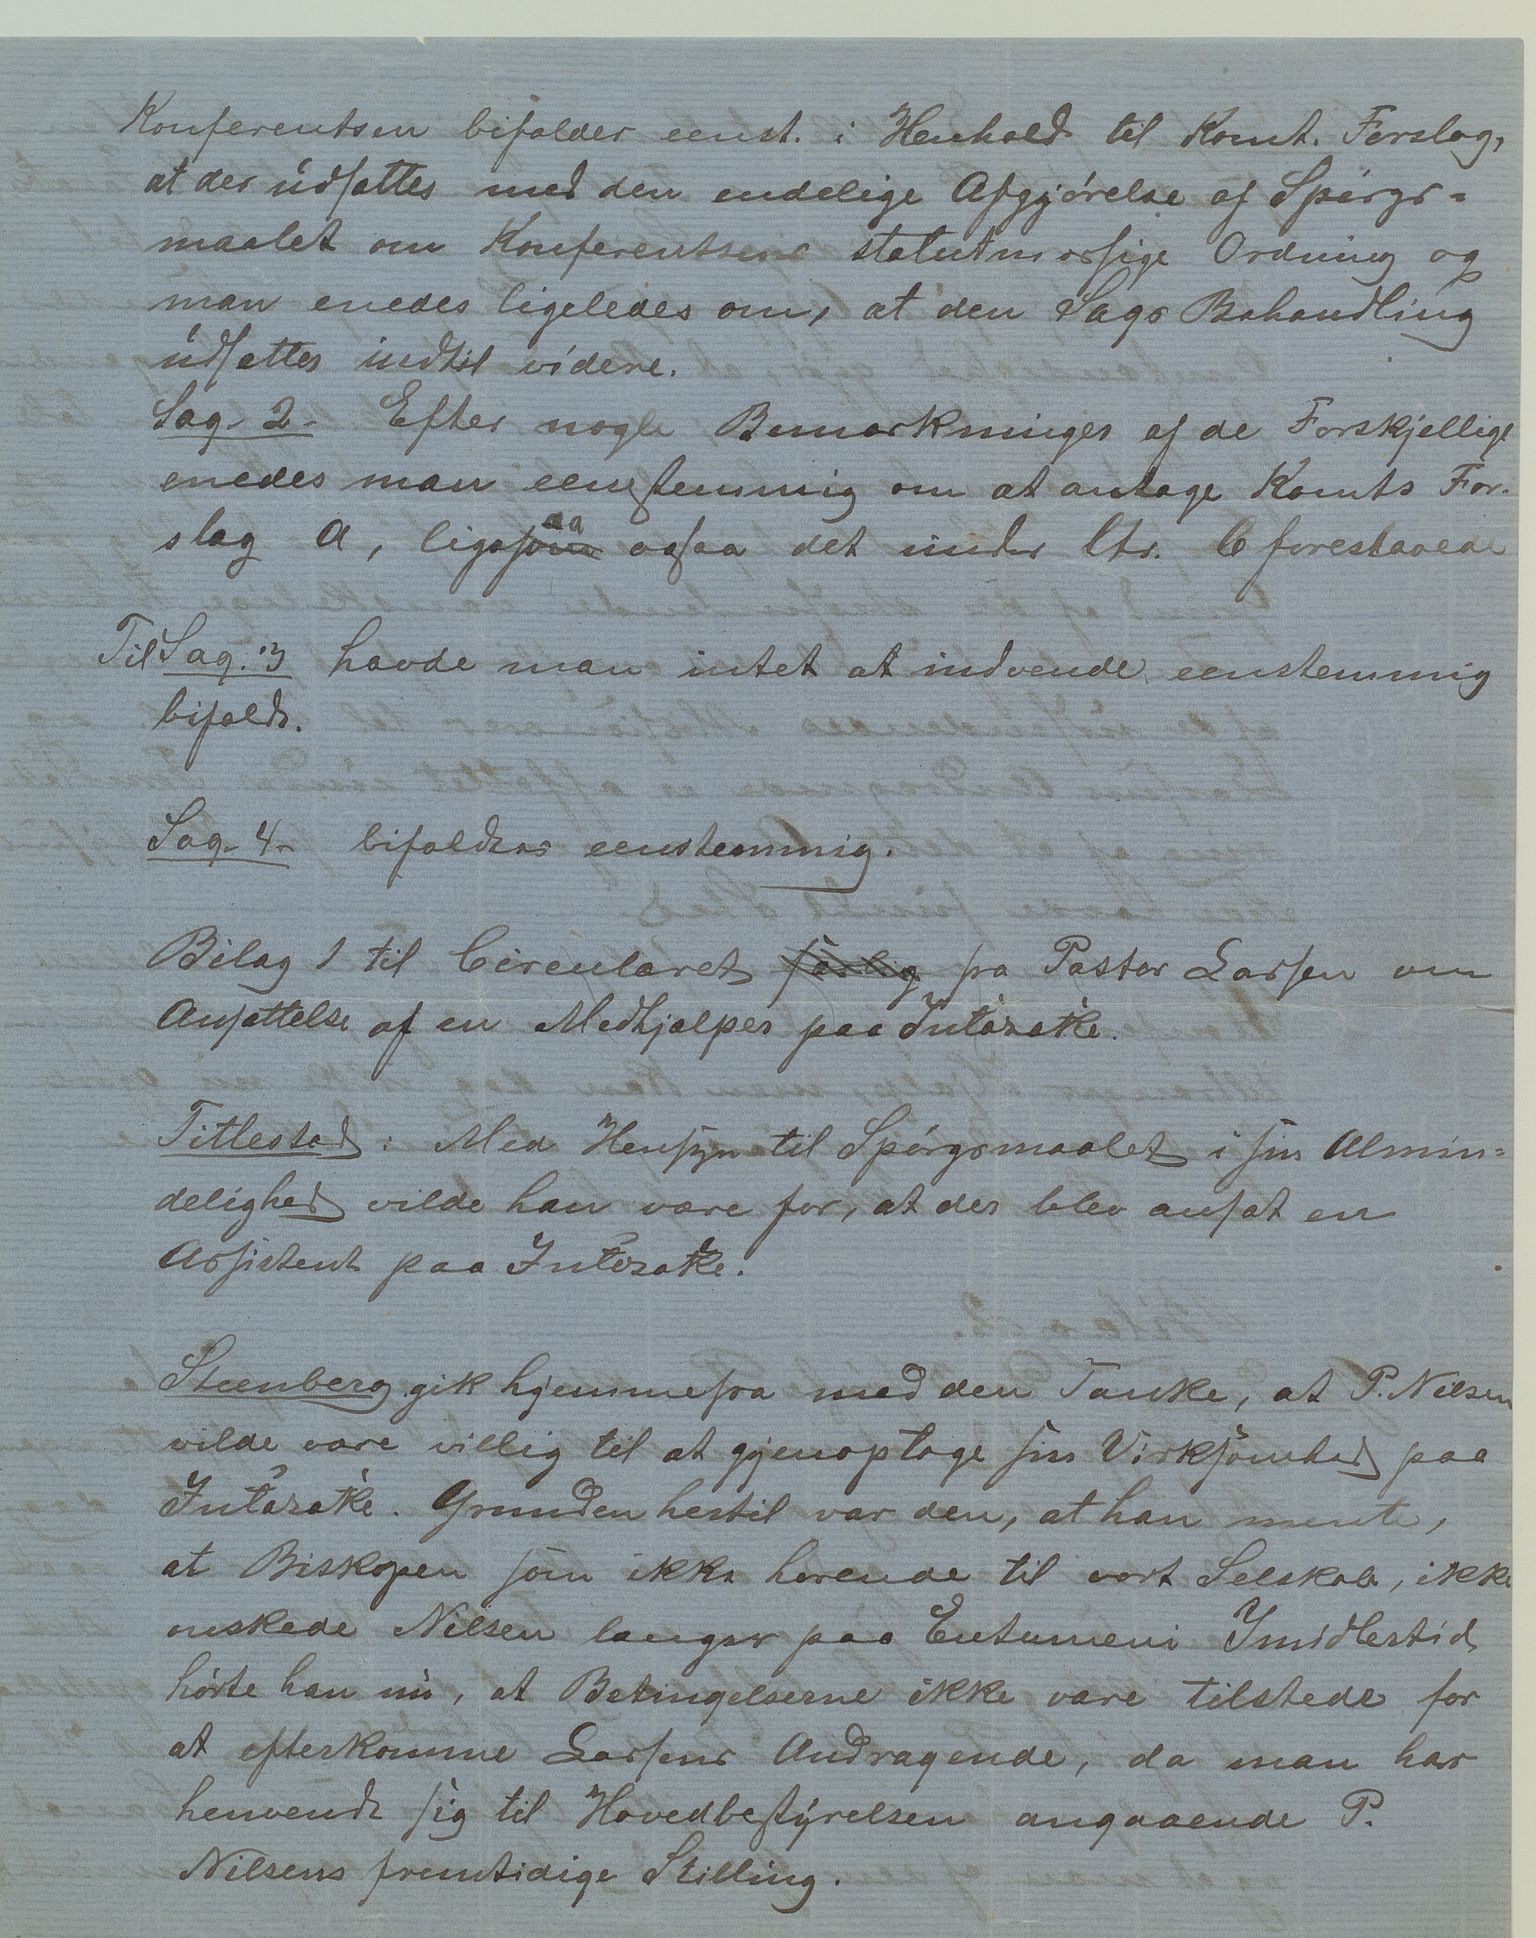 Konferentsen bifalder eenst. i Henhold til Komt. Forslag,
at der udsættes med den endelige Afgjörelse af Spörgs-
maalet om Konferentsens statutmæssige Ordning og
man enedes ligeledes om, at den Sags Behandling
udsættes indtil videre.
Sag. 2. Efter nogle Bemærkninger af de Forskjellige
enedes man eenstemmig om at antage Komts For-
slag A, ligesaa ogsaa det under Ltr. C foreslaaede
Til Sag. 3 havde man intet at indvende, eenstemmig
bifaldt.
Sag. 4. bifaldtes eenstemmig.
Bilag 1 til Circulæret særlig fra Pastor Larsen om
Ansættelse af en Medhjælper paa Inhlazatke.
Titlestad: Med Hensyn til Spörgsmaalet i sin Almin-
delighed vilde han være for, at der blev ansat en
Assistent paa
Steenberg gik hjemmefra med den Tanke, at P. Nilsen
vilde være villig til at gjenoptage sin Virksomhed paa
Grunden hertil var den, at han mente,
at Biskopen som ikke hørende til vort Selskab, ikke
ønskede Nilsen længer paa Entumeni Imidlertid
hörte han nu, at Betingelserne ikke vare tilstede for
at efterkomme Larsens Andragende, da man har
henvendt sig til Hovedbestyrelsen angaaende P.
Nilsens fremtidige Stilling.